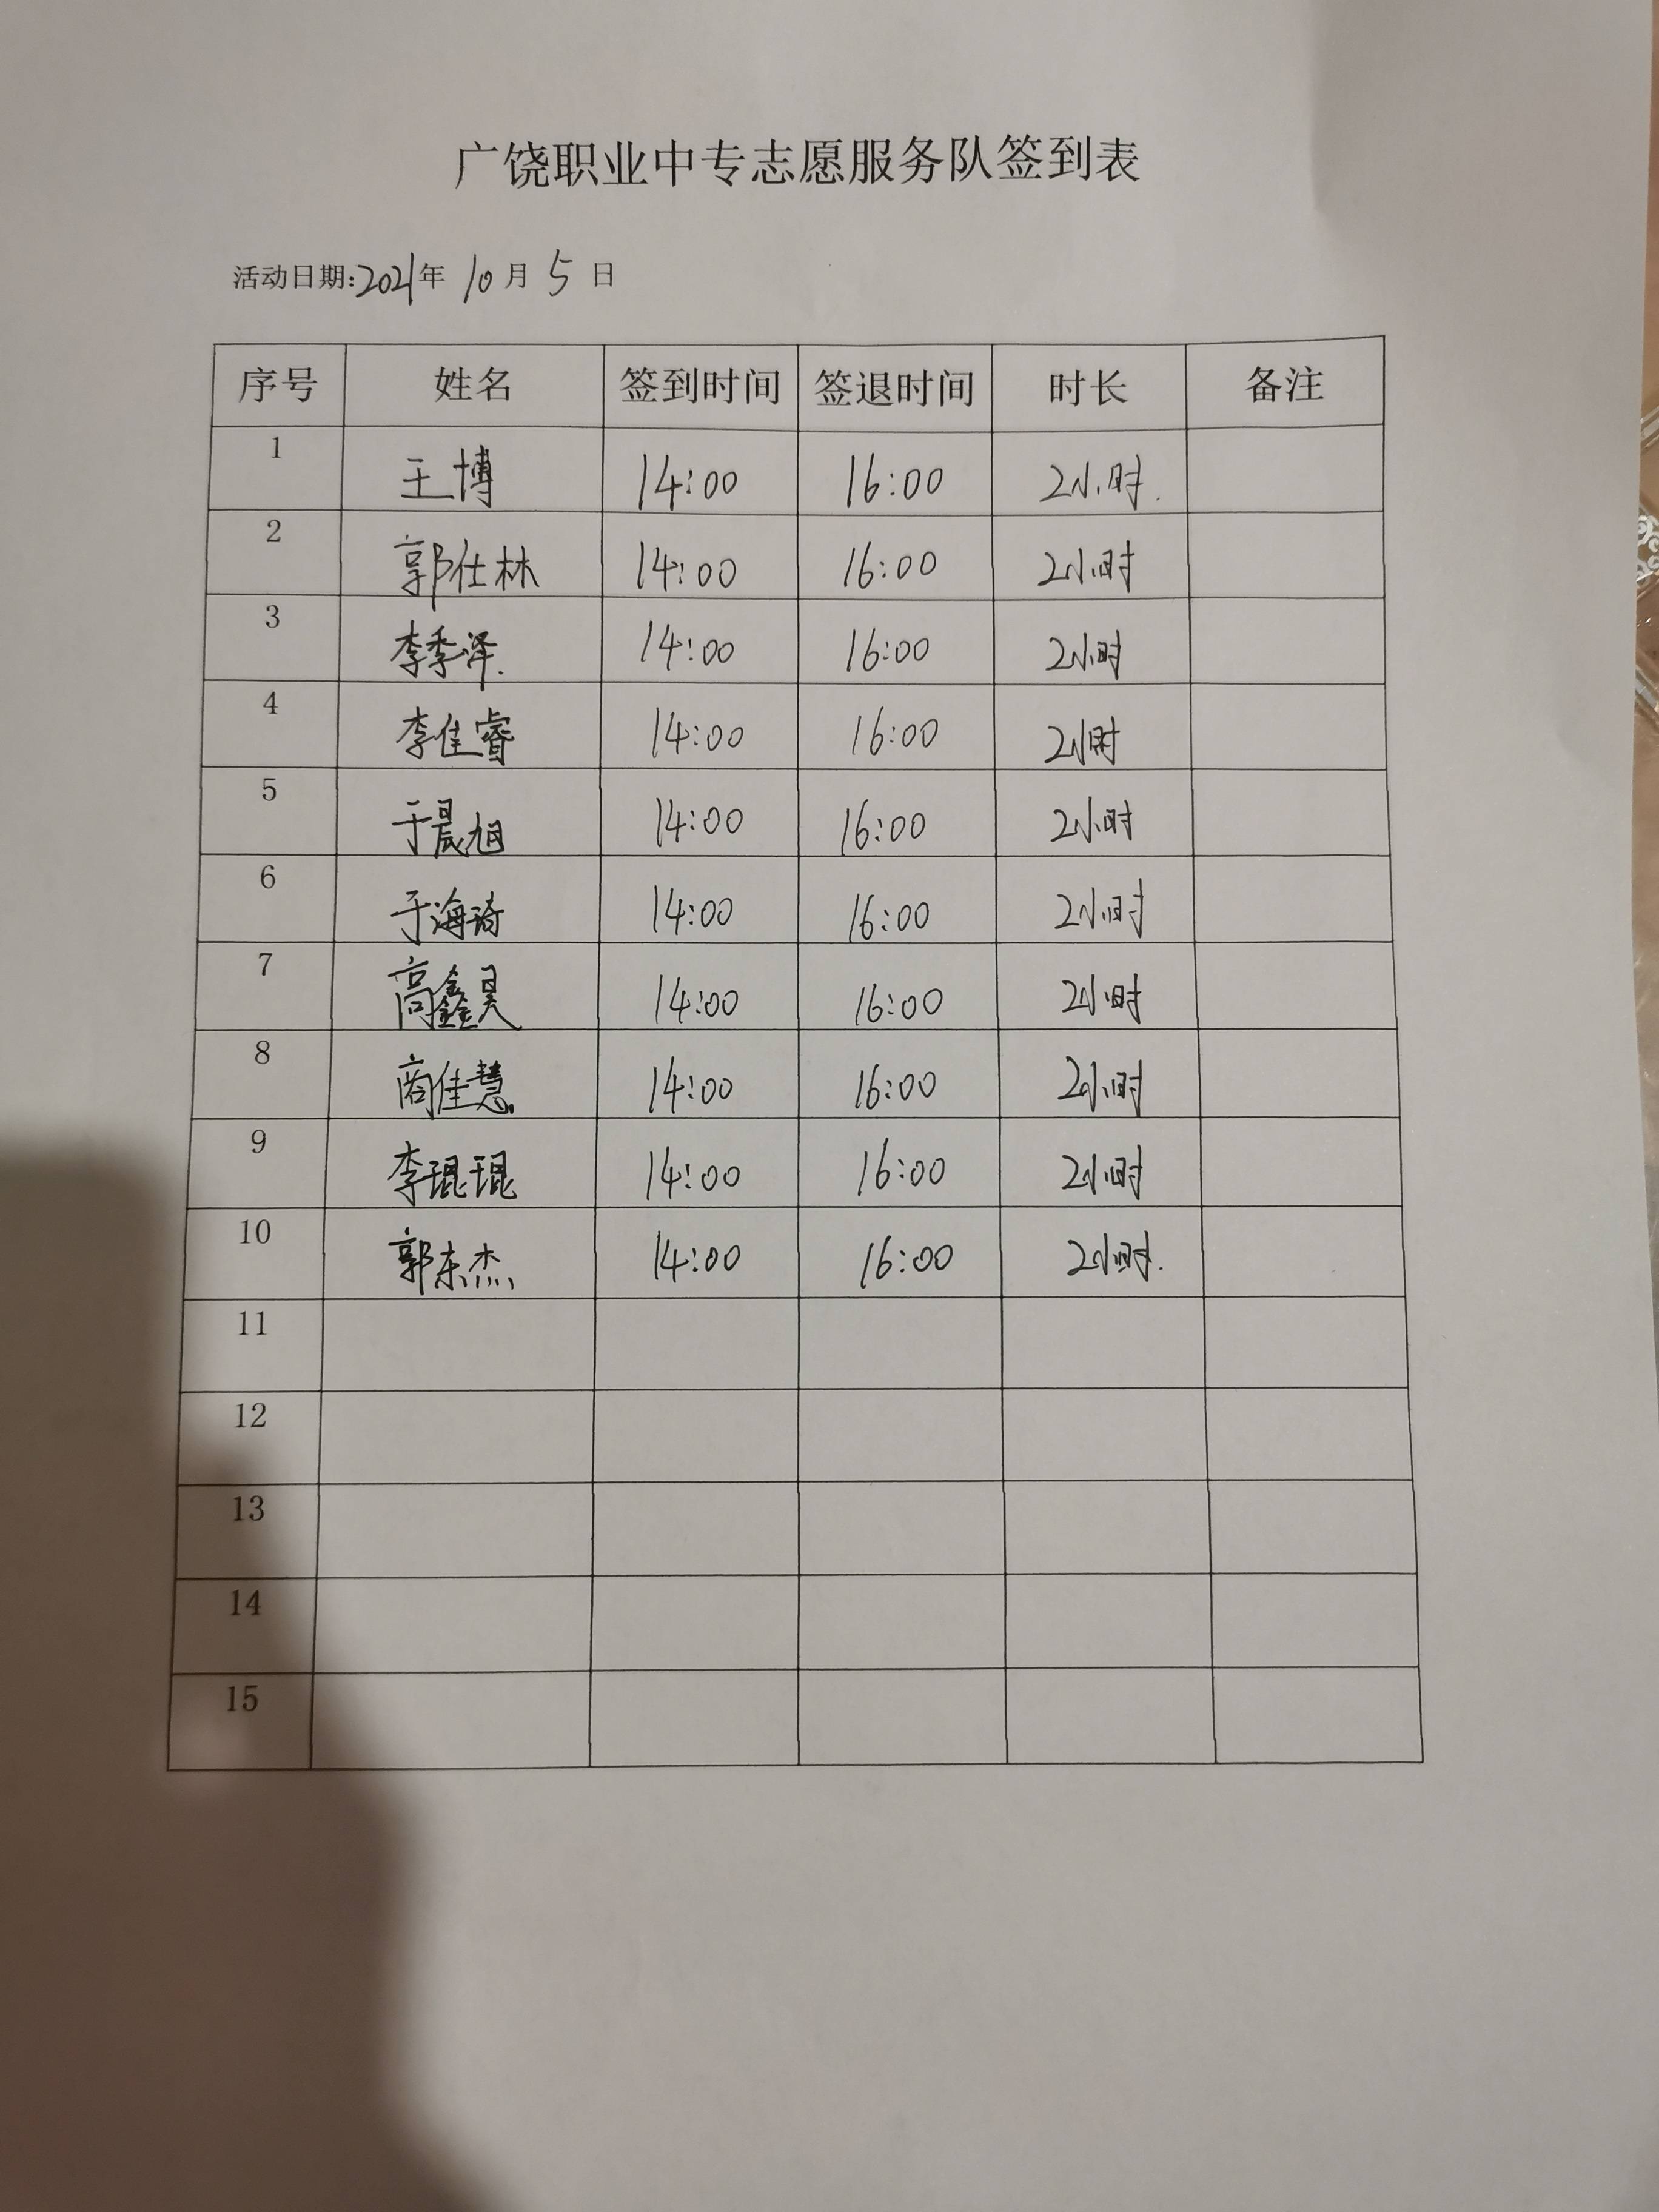 广饶职业中专志愿服务队签到表
活动日期:2021年 10月 5日
序号 姓名 签到时间 签退时间 时长 备注
1 王博 14:00 16:00 2小时.
2 郭仕林 14:00 16:00 2小时
3 李季泽. 14:00 16:00 2小时
4 李佳睿 14:00 16:00 2小时
5 于晨旭 14:00 16:00 2小时
6 于海琦 14:00 16:00 2小时
7 高鑫昊 14:00 16:00 2小时
8 商佳慧 14:00 16:00 2小时
9 李琨琨 14:00 16:00 2小时
10 郭东杰 14:00 16:00 2小时.
11
12
13
14
15